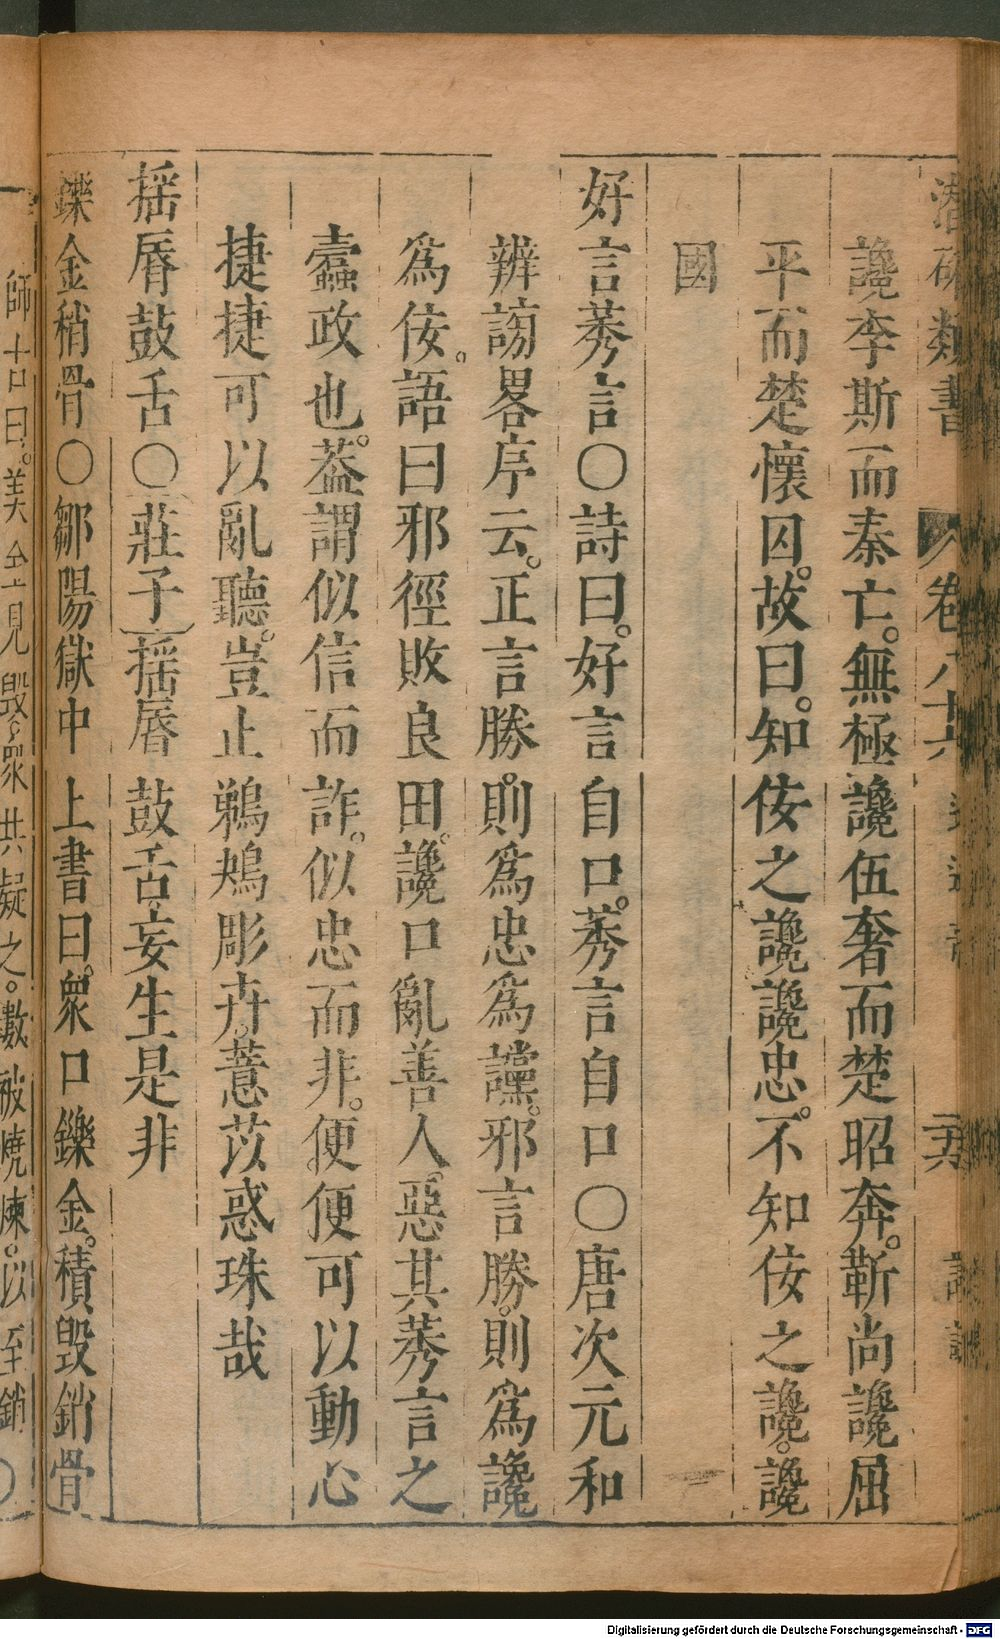 潛確類書 卷八十六 二六
讒李斯而秦亡。無極讒伍奢而楚昭奔。靳尚讒屈
平而楚懷囚。故曰。知佞之讒讒忠。不知佞之讒。讒
國
好言莠言○詩曰。好言自口。莠言自口○唐次元和
辨謗畧序云。正言勝。則爲忠爲讜。邪言勝。則爲讒
爲佞。語曰邪徑敗良田。讒口亂善人。惡其莠言之
蠹政也。葢謂似信而詐。似忠而非。便便可以動心
捷捷可以亂聽。豈止鵜鴂彫卉。薏苡惑珠哉
揺脣鼓舌○莊子揺脣鼓舌妄生是非
鑠金稍骨○鄒陽獄中上書曰。衆口鑠金。積毀銷骨
師古曰。美金見毀衆共疑之。數被燒煉。以至銷○
Digitalisierung gefördert durch die Deutsche Forschungsgemeinschaft - DFG